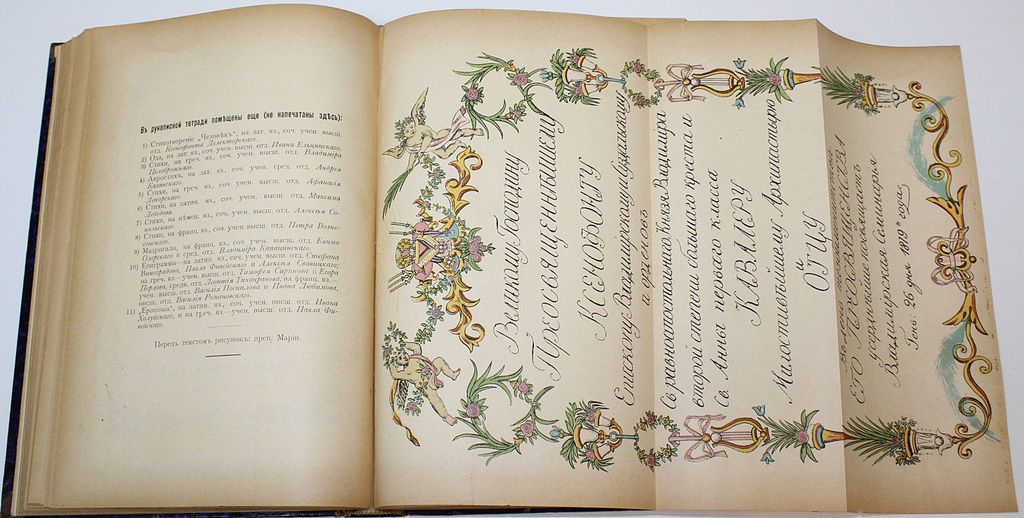 Въ рукописной тетради помѣщены еще (не напечатаны здѣсь):
1) Стихотвореніе „Человѣкъ“, на лат. яз., соч. учен. высш.
отд. Ксенофонта Делекторскаго.
2) Ода, на лат. яз., соч. учен. высш. отд. Ивана Ельцинскаго.
3) Стихи, на греч. яз., соч. учен. высш. отд. Владиміра
Цезебровскаго.
4) Акростихъ, на лат. яз., соч. учен. сред. отд. Андрея
Казанскаго.
5) Стихи, на греч. яз., соч. учен. высш. отд. Аѳанасія
6) Стихи, на латин. яз., соч. учен. высш. отд. Максима
Лебедева.
7) Стихи, на нѣмец. яз., соч. учен. высш. отд. Алексѣя Со-
кольскаго.
8) Стихи, на франц. яз., соч. учен. высш. отд. Петра Возне-
сенскаго.
9) Мадригалы, на франц. яз., соч. учен. высш. отд. Ефима
Озерскаго и сред. отд. Владиміра Капацинскаго.
10) Епиграммы—на латин. яз., соч. учен. высш. отд. Стефана
Виноградова, Павла Фивейскаго и Алексѣя Сваницкаго;
на греч. яз.—учен. высш. отд. Тимоѳея Спиридова и Егора
Перлова, средн. отд. Леонтія Тихонравова; на франц. яз.—
учен. высш. отд. Василія Поспелова и Ивана Любимова,
нисш. отд. Василія Романовскаго.
11) соч. учен. нисш. отд. Ивана
Холуйскаго, и на греч. яз.—учен. высш. отд. Павла Фи-
вейскаго.
Передъ текстомъ рисунокъ: преп. Марія.
Великому Господину
Преосвященнѣйшему
КСЕНОФОНТУ
Епископу Владимирскому и Суздальскому
и орденовъ
Св. равноапостольнаго Князя Владиміра
второй степени большаго креста и
Св. Анны перваго класса
КАВАЛЕРУ
Милостивѣйшему Архипастырю
и
ОТЦУ
ЕГО ПРЕОСВЯЩЕНСТВА
усерднѣйше посвящаетъ
Владимирская Семинарія
Генв: 26 дня 1819 года